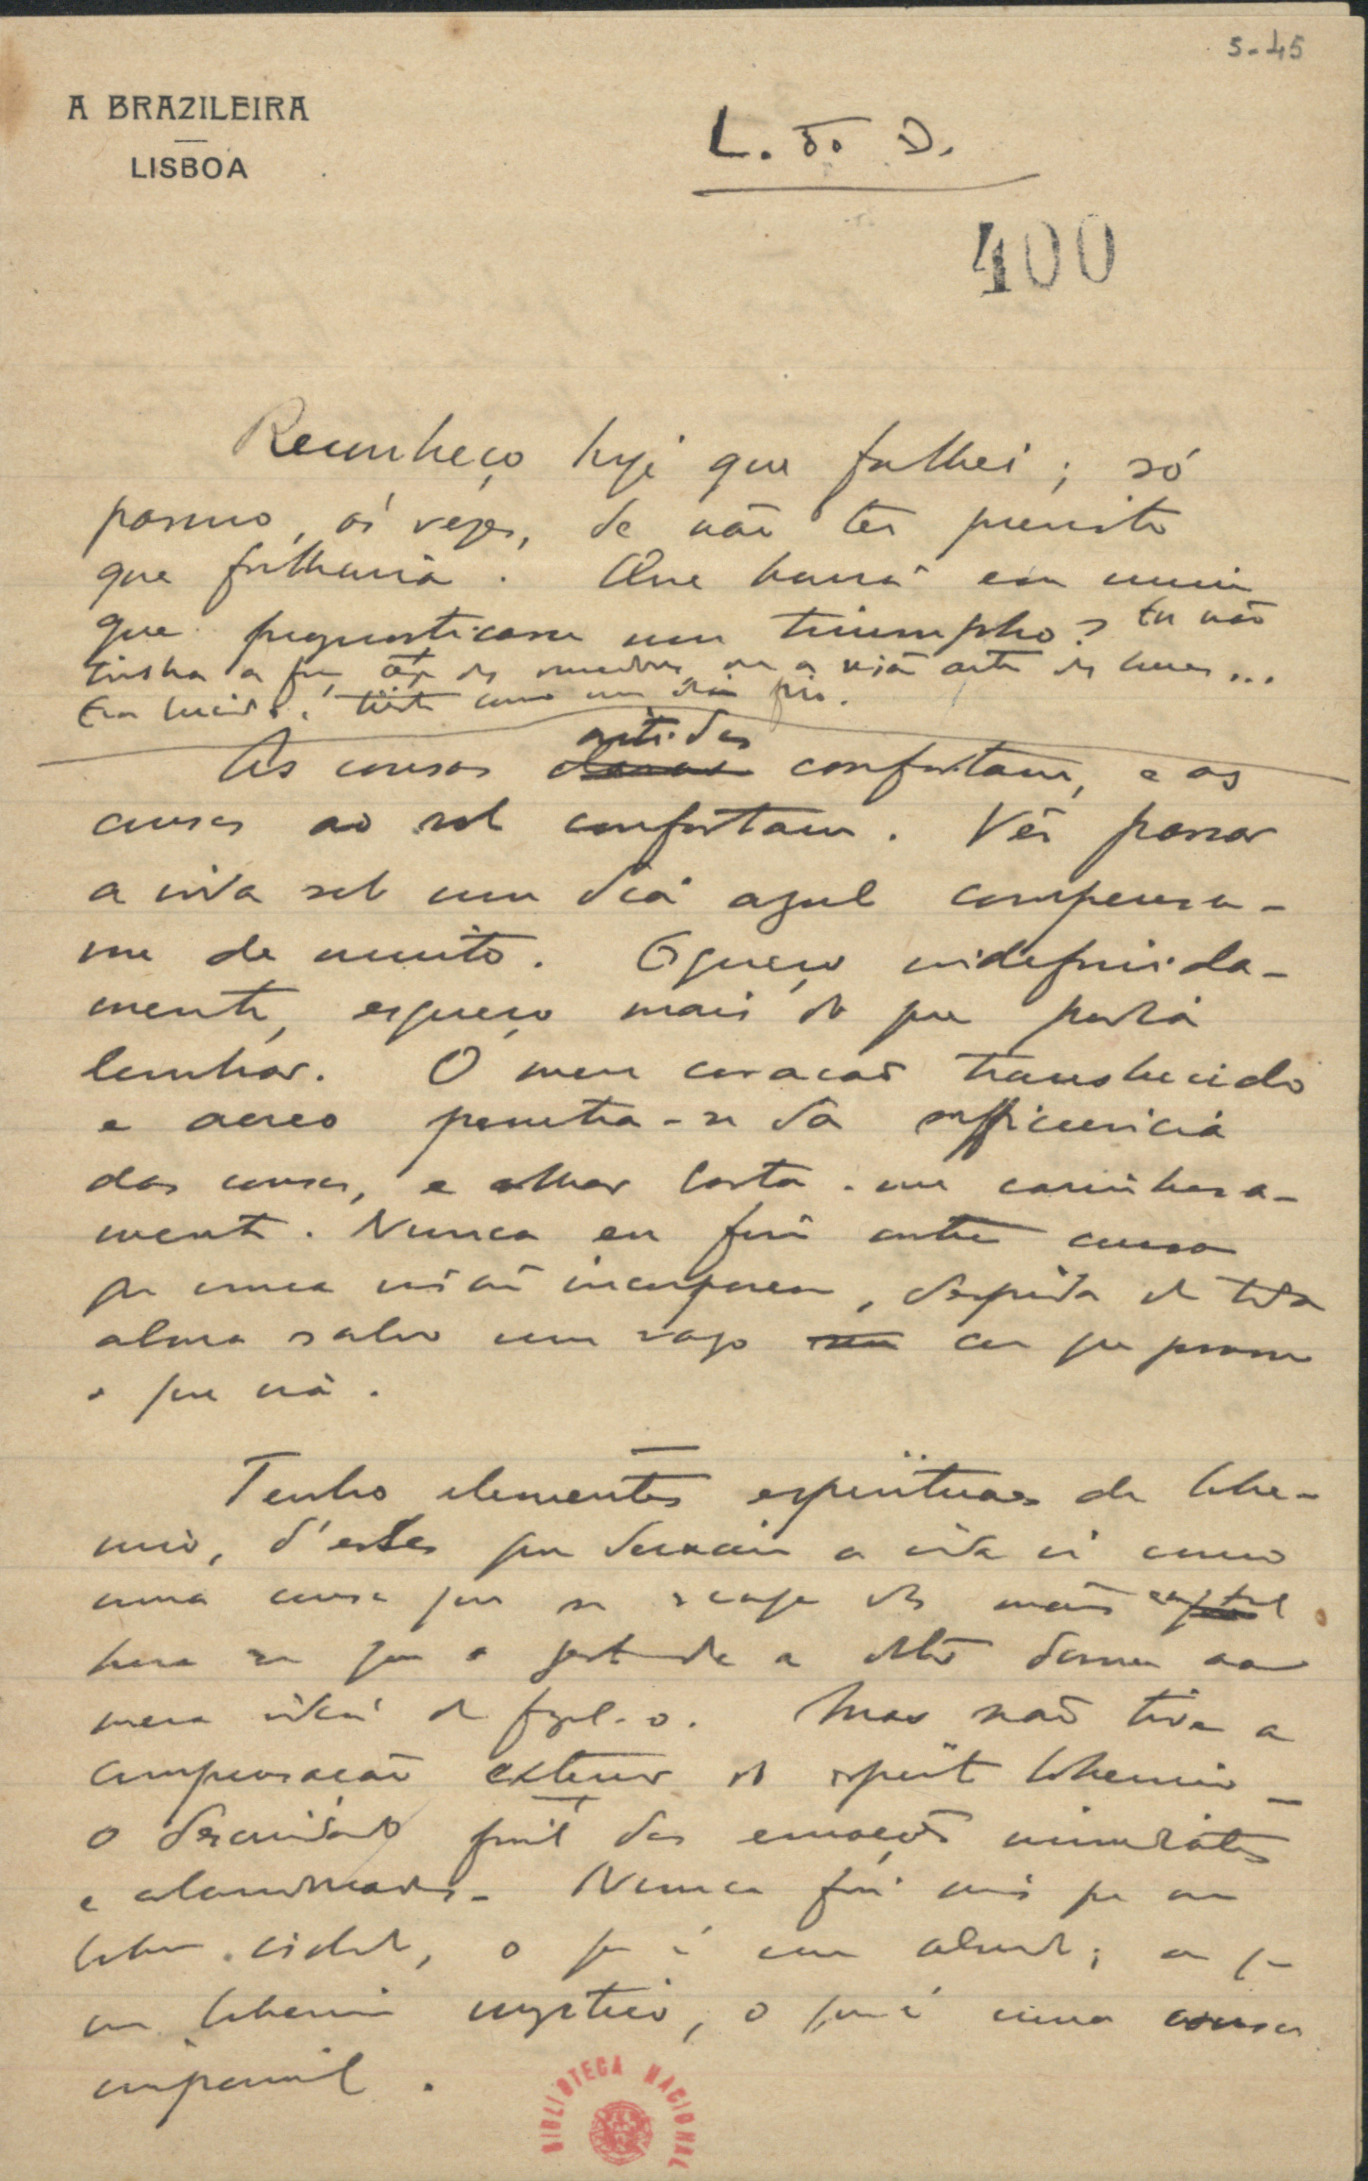 5-45
A BRAZILEIRA
LISBOA
L. do D.
400
Reconheço hoje que falhei; só
pasmo, ás vezes, de não ter previsto
que falharia. Que havia em mim
que prognosticasse um triumpho? Eu não
tinha a força cega dos vencedores, ou a visão certa dos loucos...
Era lucido e triste como um dia frio.
As cousas nitidas confortam, e as
cousas ao sol confortam. Vêr passar
a vida sob um dia azul compensa-
me de muito. Esqueço indefinida-
mente, esqueço mais do que podia
lembrar. O meu coração translucido
e aereo penetra-se da sufficiencia
das cousas, e olhar basta-me carinhosa-
mente. Nunca eu fui outra cousa
que uma visão incorporea, despida de toda
alma salvo um vago ar que passou
e que via.
Tenho elementos espirituaes de bohe-
mio, d'esses que deixam a vida ir como
uma cousa que se escapa das mãos
hora em que o gesto de a obter dorme na
mera idéa de fazel-o. Mas não tive a
compensação exterior do espirito bohemio –
o descuidado facil das emoções immediatas
e abandonadas. Nunca fui mais que um
bohemio isolado, o que é um absurdo; ou
um bohemio mystico, o que é uma cousa
impossivel.
BIBLIOTECA NACIONAL